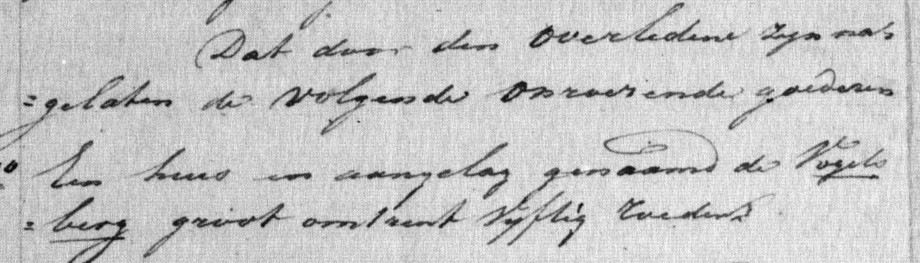 Dat door den overledene zyn na=
=gelaten de volgende onroerende goederen
1o Een huis en aangelag genaamd de Vogels
=berg groot omtrent vyftig roeden